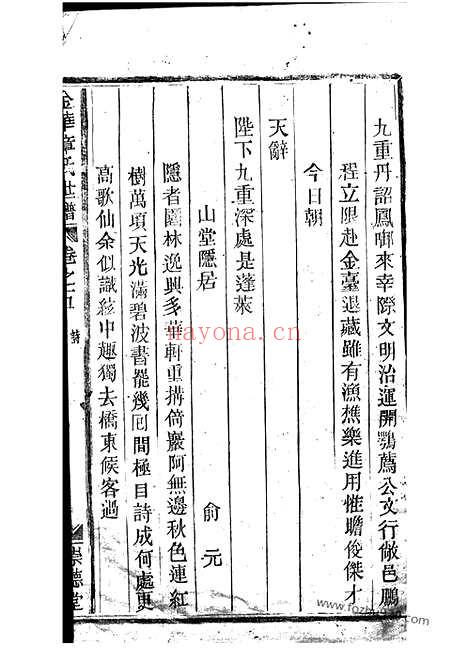 九重丹詔鳳啣來幸際文明治運開鶚薦公文行敝邑鵬
程立限赴金臺退藏雖有漁樵樂進用惟瞻俊傑才
今日朝
天辭
陛下九重深處是蓬萊
山堂隱居 俞元
隱者園林逸興多草軒重搆倚巖阿無邊秋色連紅
樹萬頃天光滿碧波書罷幾回間極目詩成何處更
高歌仙余似識絃中趣獨去橋東候客過
金華章氏世譜 卷之五 詩 崇德堂
nayona.cn